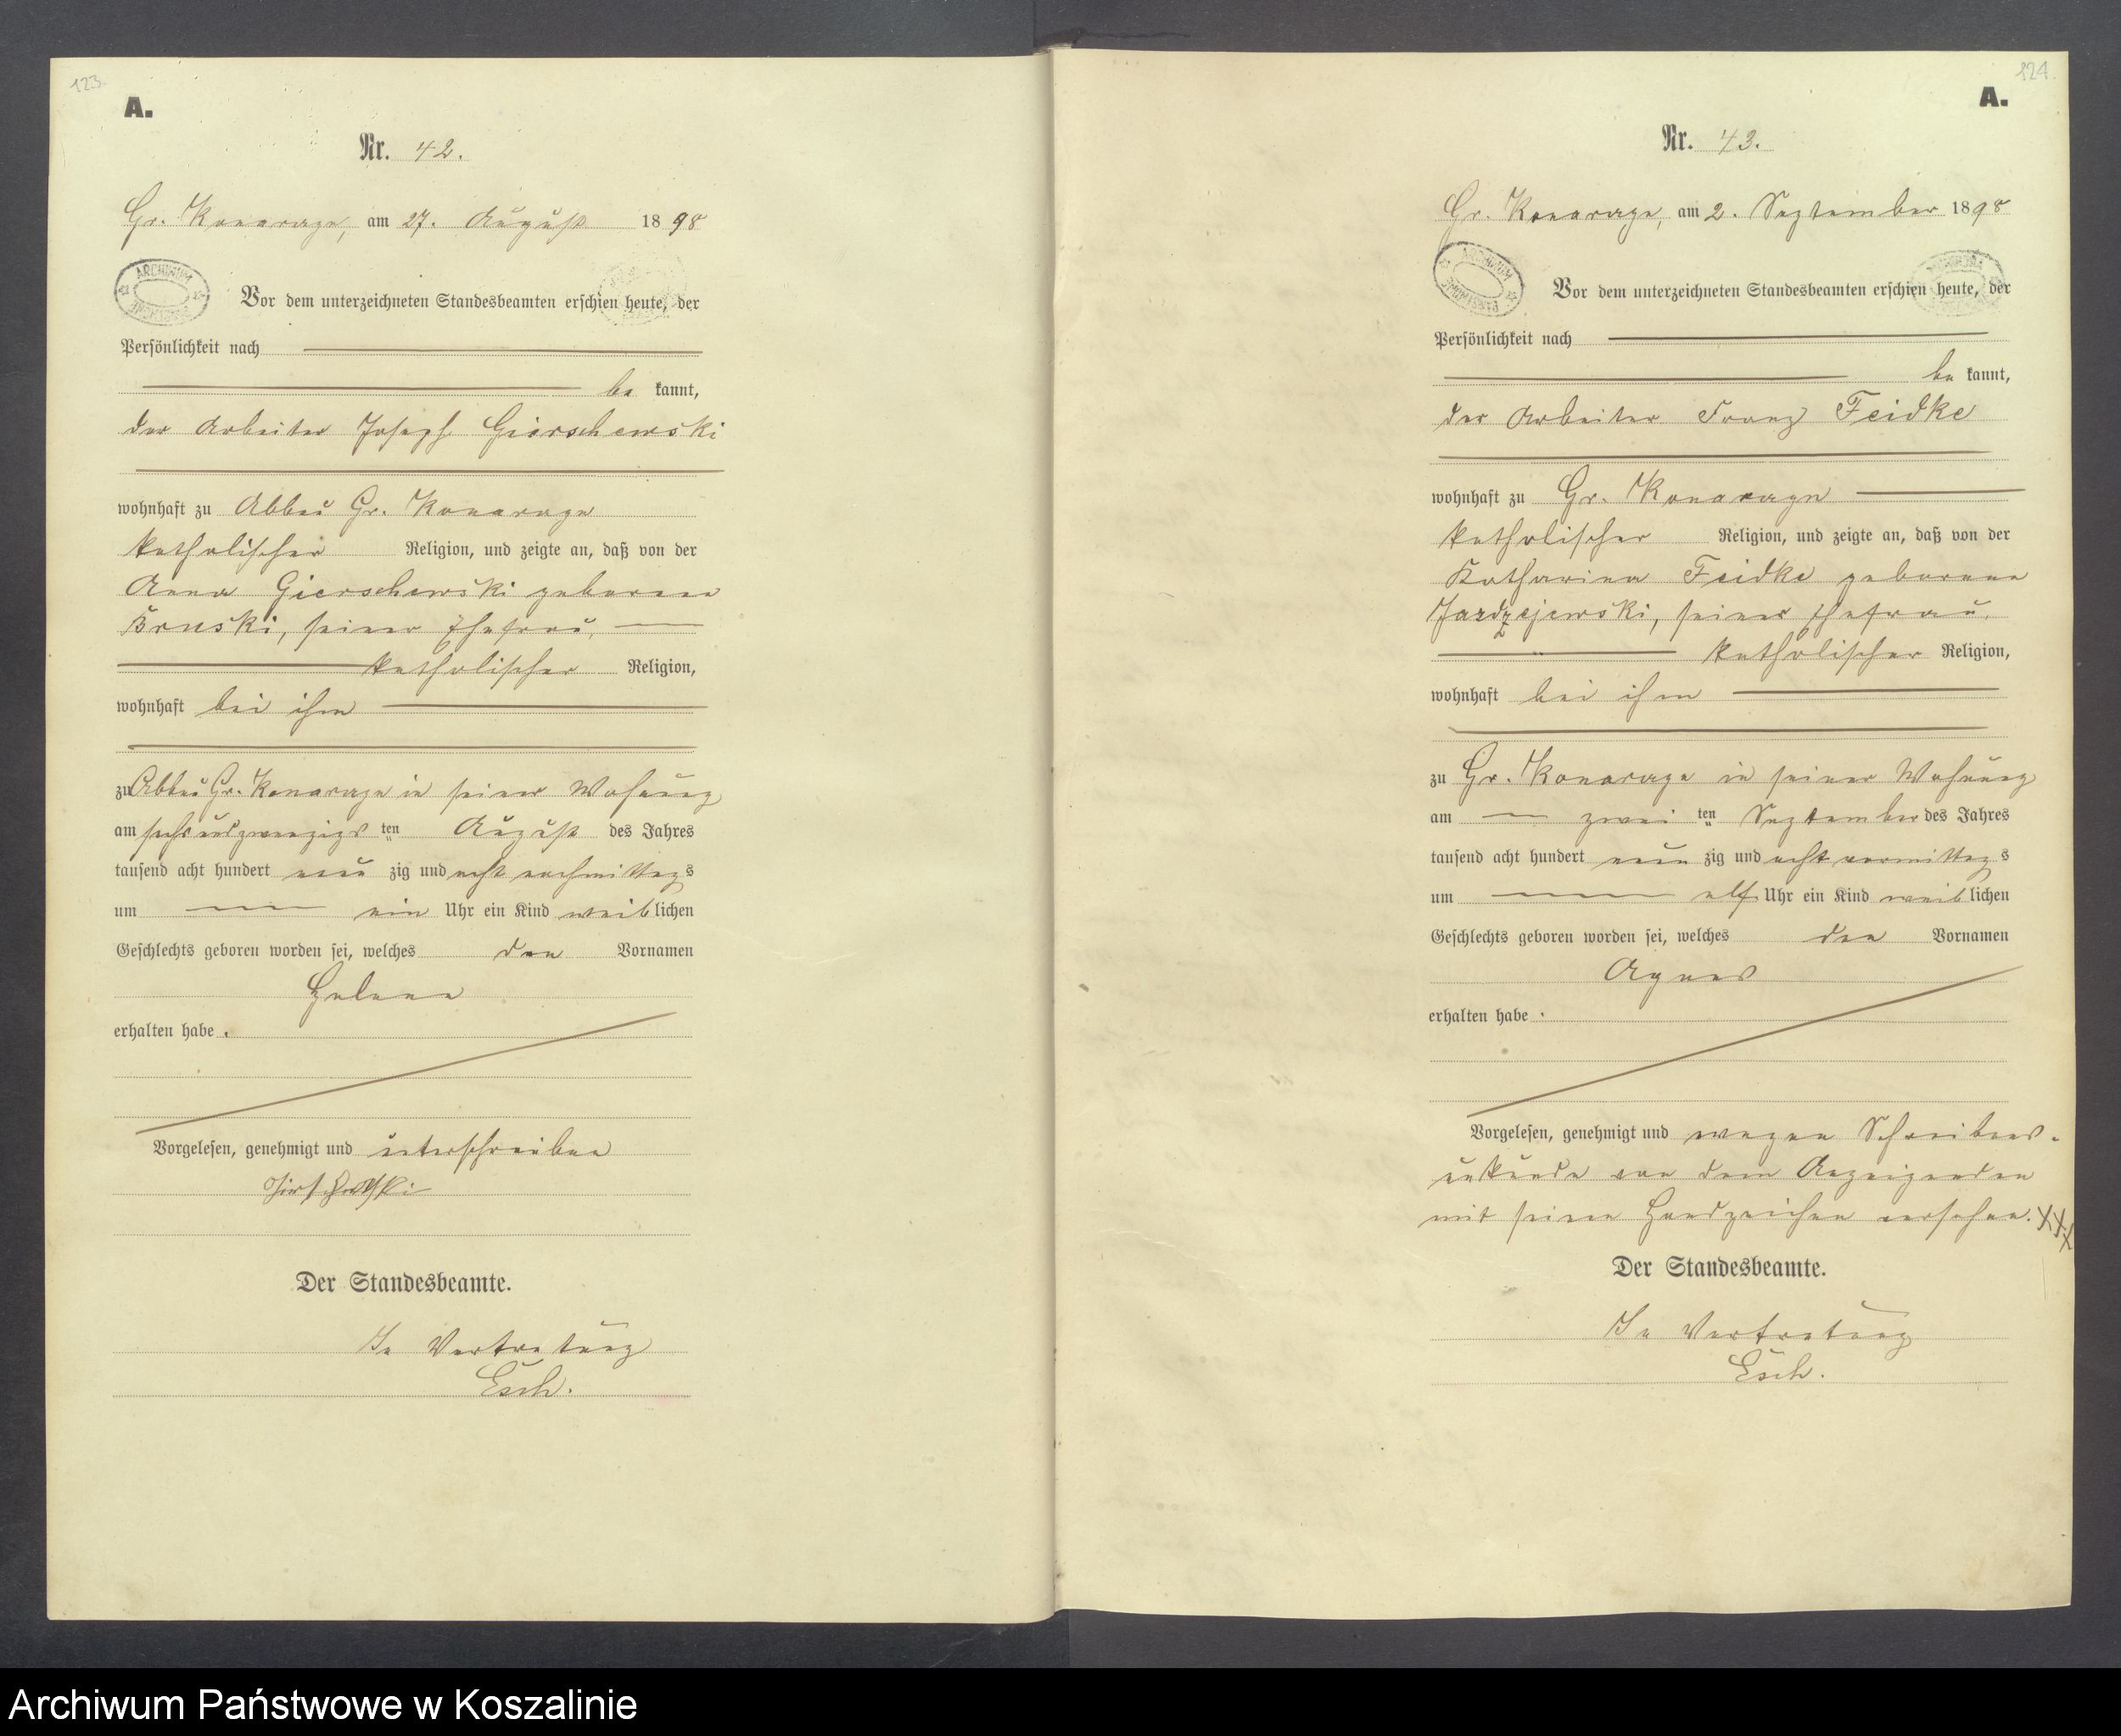 123.
A.
Nr. 42.
Gr. Konarage, am 27. August 1898
ARCHIWUM
Vor dem unterzeichneten Standesbeamten erschien heute, der
Persönlichkeit nach
be kannt,
der Arbeiter Joseph Gierschewski
wohnhaft zu Abbau Gr. Konarage
katholischer Religion, und zeigte an, daß von der
Anna Gierschewski geborene
Bruski, seiner Ehefrau,
katholischer Religion,
wohnhaft bei ihm
zu Abbau Gr. Konarage in seiner Wohnung
am sechsundzwanzigs ten August des Jahres
tausend acht hundert neun zig und acht nachmittags
um ein Uhr ein Kind weiblichen
Geschlechts geboren worden sei, welches den Vornamen
Helene
erhalten habe.
Vorgelesen, genehmigt und unterschrieben
Der Standesbeamte.
In Vertretung
Esch.
124.
A.
Nr. 43.
Gr. Konarage, am 2. September 1898
ARCHIWUM
Vor dem unterzeichneten Standesbeamten erschien heute, der
Persönlichkeit nach
be kannt,
der Arbeiter Franz Feidke
wohnhaft zu Gr. Konarage
katholischer Religion, und zeigte an, daß von der
Katharina Feidke geborene
Jazdzejewski, seiner Ehefrau,
katholischer Religion,
wohnhaft bei ihm
zu Gr. Konarage in seiner Wohnung
am zwei ten September des Jahres
tausend acht hundert neun zig und acht vormittags
um elf Uhr ein Kind weiblichen
Geschlechts geboren worden sei, welches den Vornamen
Agnes
erhalten habe.
Vorgelesen, genehmigt und wegen Schreibens-
unkunde von dem Anzeigenden
mit seinen Handzeichen versehen. XXX
Der Standesbeamte.
In Vertretung
Esch.
Archiwum Państwowe w Koszalinie